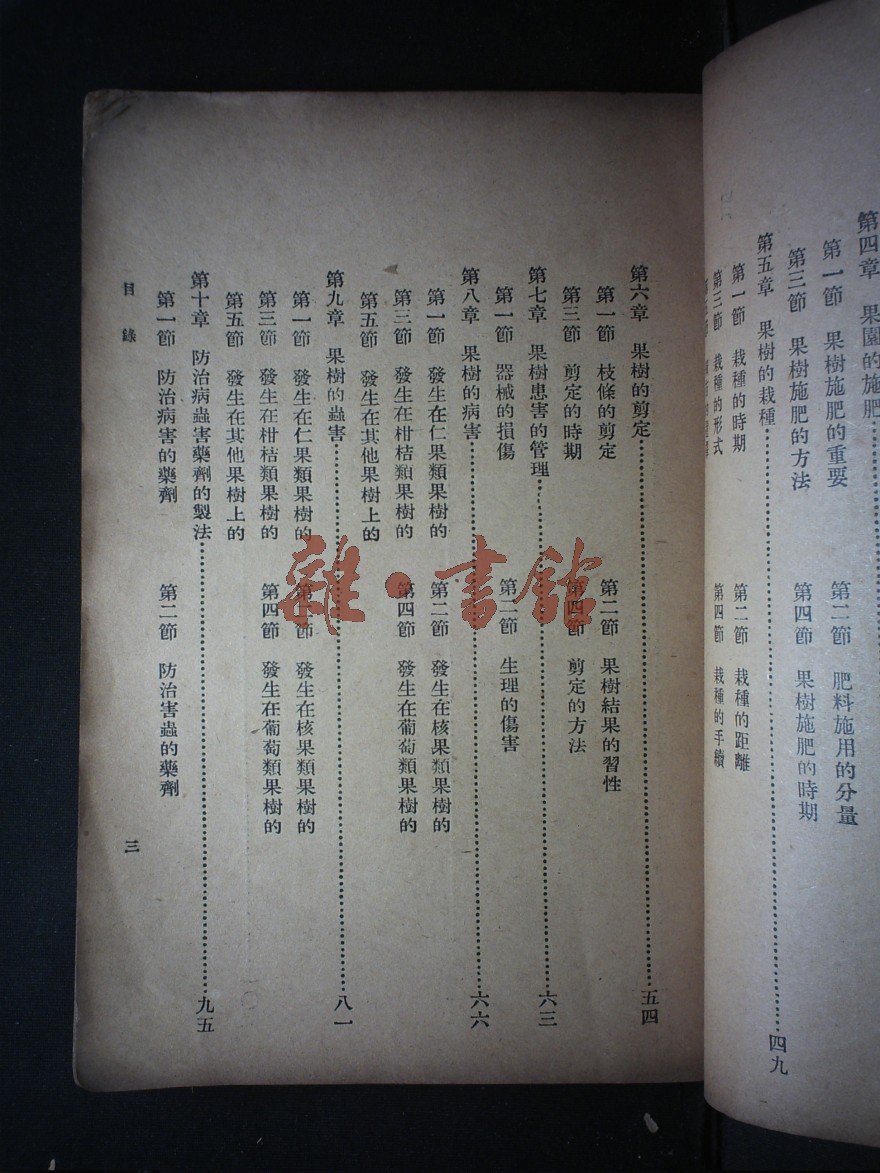 第四章 果園的施肥
第一節 果樹施肥的重要 第二節 肥料施用的分量
第三節 果樹施肥的方法 第四節 果樹施肥的時期
第五章 果樹的栽種 四九
第一節 栽種的時期 第二節 栽種的距離
第三節 栽種的形式 第四節 栽種的手續
第六章 果樹的剪定 五四
第一節 枝條的剪定 第二節 果樹結果的習性
第三節 剪定的時期 第四節 剪定的方法
第七章 果樹患害的管理 六三
第一節 器械的損傷 第二節 生理的傷害
第八章 果樹的病害 六六
第一節 發生在仁果類果樹的 第二節 發生在核果類果樹的
第三節 發生在柑桔類果樹的 第四節 發生在葡萄類果樹的
第五節 發生在其他果樹上的
第九章 果樹的蟲害 八一
第一節 發生在仁果類果樹的 第二節 發生在核果類果樹的
第三節 發生在柑桔類果樹的 第四節 發生在葡萄類果樹的
第五節 發生在其他果樹上的
第十章 防治病蟲害藥劑的製法 九五
第一節 防治病害的藥劑 第二節 防治害蟲的藥劑
目錄 三
雜·書館